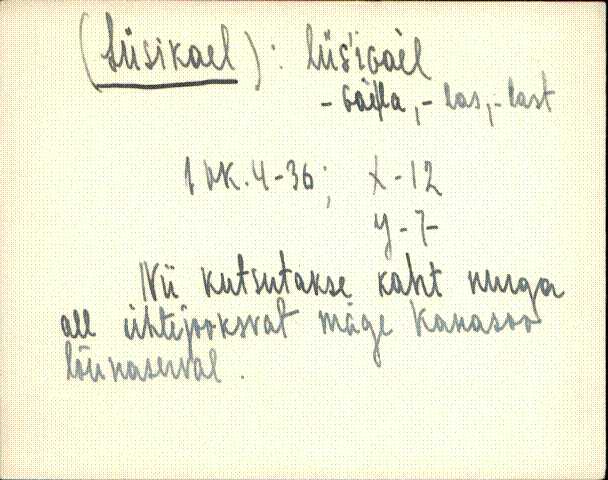 (Liisikael): liis'iGaèl
-Gaèlla, -las, -last
1 vk. 4-36; x-12
y-7
Nii kutsutakse kaht nurga
all ühtejooksvat mäge Kanasoo
lõunaserval.